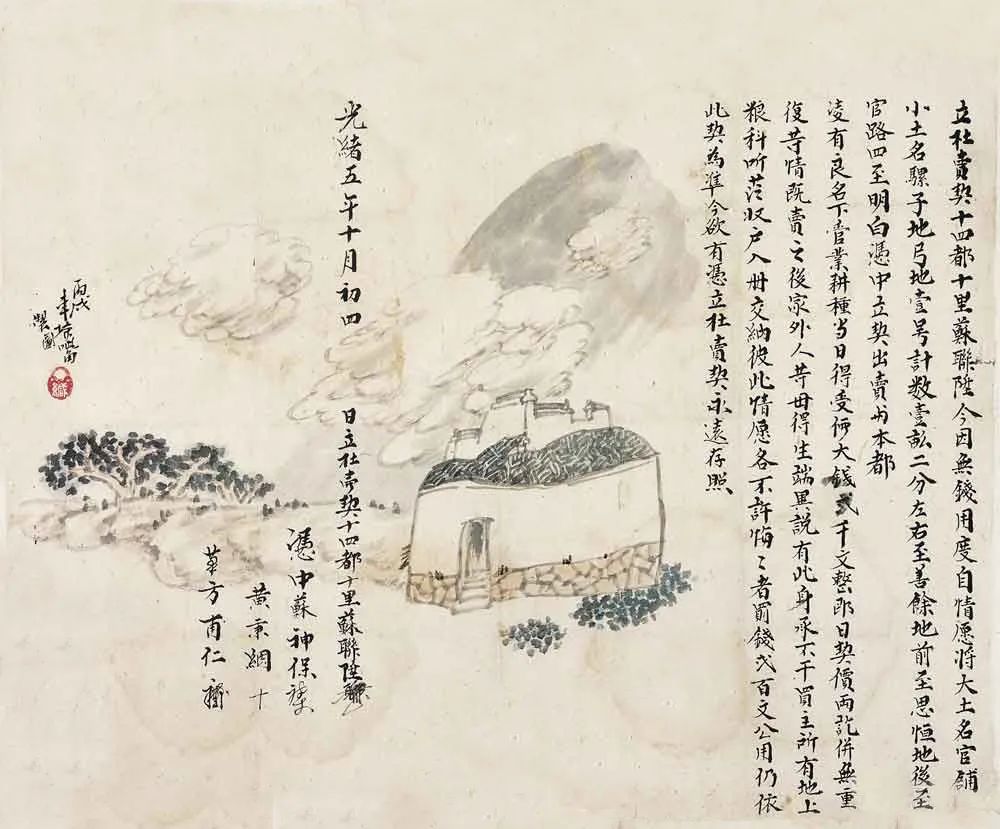 立杜賣契十四都十里蘇聯陞今因無錢用度自情愿將大土名官舖
小土名騾子地弓地壹号計数壹畝二分左右至善餘地前至思恒地後至
官路四至明白憑中立契出賣與本都
凌有良名下管業耕種当日得受價大錢弍千文整即日契價両訖併無重
復等情既賣之後家外人等毋得生端異説有此身承不干買主所有地上
粮科听從収户入册交納彼此情愿各不許悔〻者罰錢弍百文公用仍依
此契為準今欲有憑立杜賣契永遠存照
光緒五年十月初四 日立杜賣契十四都十里蘇聯陞
憑中蘇神保
黄秉綱十
葉方甫仁
丙戌